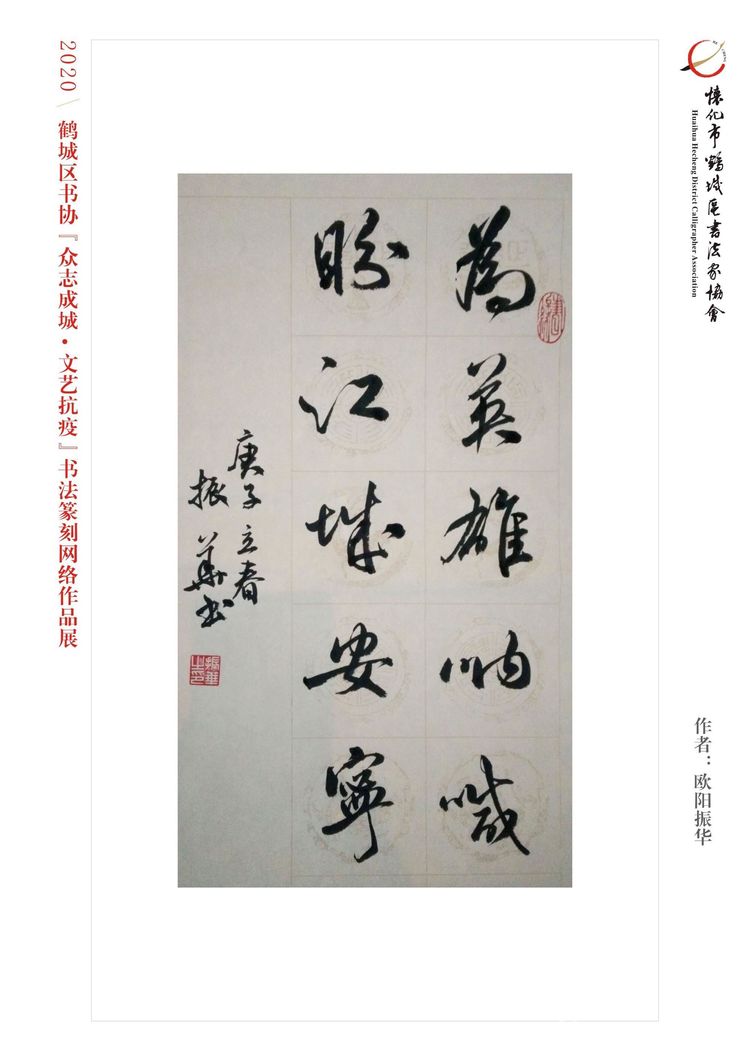 2020 \ 鹤城区书协『众志成城·文艺抗疫』书法篆刻网络作品展
懷化市鶴城區書法家協會
Huaihua Hecheng District Calligrapher Association
為英雄吶喊
盼江城安寧
庚子立春
振華书
振華之印
作者：欧阳振华